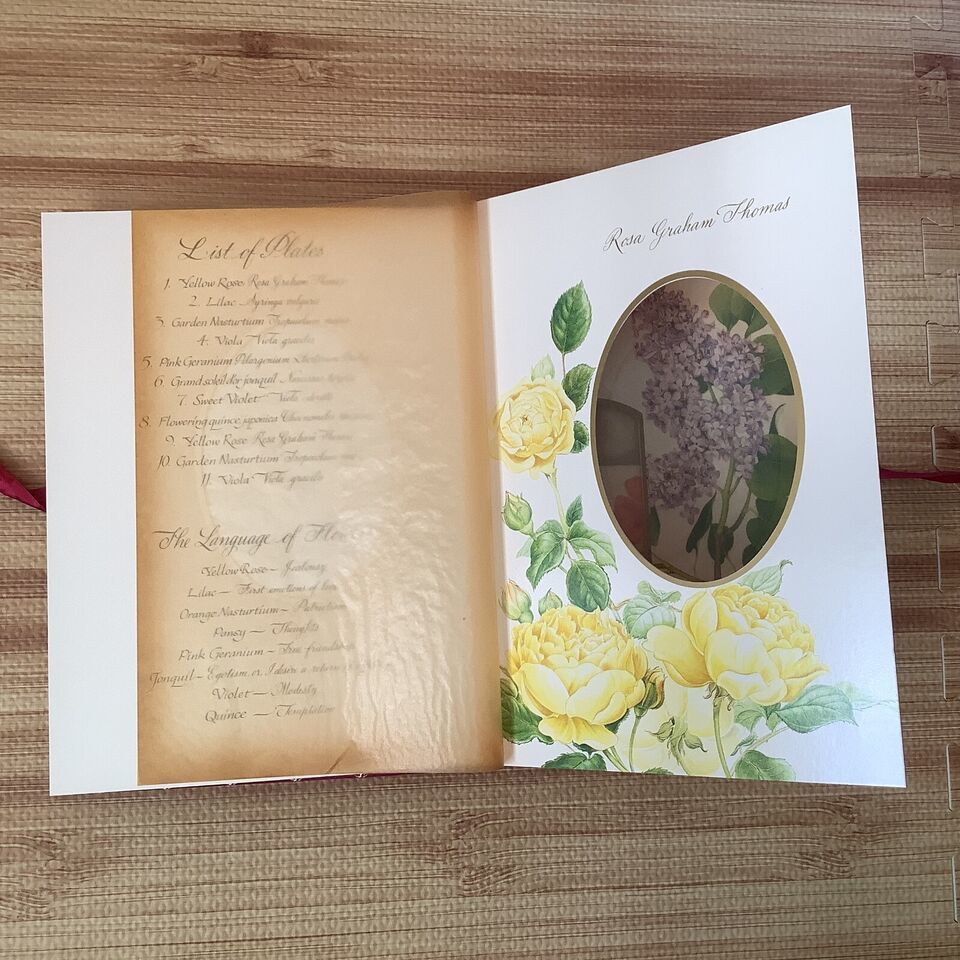 List of Plates
1. Yellow Rose Rosa Graham Thomas
2. Lilac Syringa vulgaris
3. Garden Nasturtium Tropaeolum majus
4. Viola Viola gracilis
5. Pink Geranium Pelargonium
6. Grand soleil d'or jonquil Narcissus
7. Sweet Violet Viola odorata
8. Flowering quince, japonica Chaenomeles
9. Yellow Rose Rosa Graham Thomas
10. Garden Nasturtium Tropaeolum
11. Viola Viola gracilis
The Language of
Yellow Rose – Jealousy
Lilac – First emotions of love
Orange Nasturtium – Patriotism
Pansy – Thoughts
Pink Geranium – True friendship
Jonquil – Egotism, or, I desire a return
Violet – Modesty
Quince – Temptation
Rosa Graham Thomas